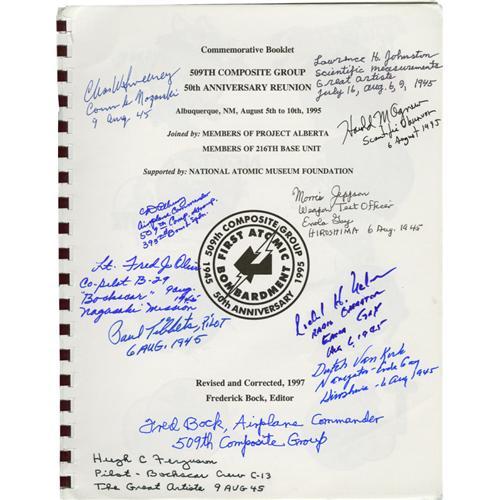 Commemorative Booklet
509TH COMPOSITE GROUP
50TH ANNIVERSARY REUNION
Albuquerque, NM, August 5th to 10th, 1995
Joined by: MEMBERS OF PROJECT ALBERTA
MEMBERS OF 216TH BASE UNIT
Supported by: NATIONAL ATOMIC MUSEUM FOUNDATION
Chas W Sweeney
Comm'd Nagasaki
9 Aug 45
Lawrence H. Johnston
Scientific Measurements
Great Artiste
July 16, Aug. 6, 9, 1945
Harold M Agnew
Scientific Observer
6 August 1945
Morris Jeppson
Weapon Test Officer
Enola Gay
HIROSHIMA 6 Aug. 1945
Airplane Commander
509th Comp. Group
393rd Bomb Sqdn.
509th COMPOSITE GROUP
FIRST ATOMIC
BOMBARDMENT
1945 1995
50th ANNIVERSARY
Lt. Fred J. Olivi
Co-pilot B-29
"Bockscar" 9 Aug.
1945
Nagasaki Mission
Paul Tibbets, PILOT
6 AUG. 1945
Richard H. Nelson
RADIO OPERATOR
ENOLA GAY
Aug 6, 1945
Dutch Van Kirk
Navigator - Enola Gay
Hiroshima - 6 Aug 1945
Revised and Corrected, 1997
Frederick Bock, Editor
Fred Bock, Airplane Commander
509th Composite Group
Hugh C Ferguson
Pilot - Bockscar Crew C-13
The Great Artiste 9 AUG 45